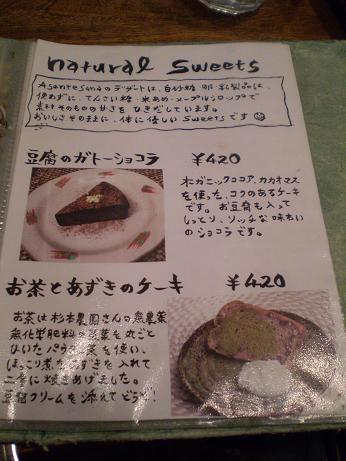 natural Sweets
Asante Sanaのデザートは、白砂糖・卵・乳製品は、
使わずに、てんさい糖・米あめ・メープルシロップで
素材そのものの甘さをひきだしています。
おいしさそのままに、体に優しいsweetsです
豆腐のガトーショコラ ¥420
オーガニックココア、カカオマス
を使った、コクのあるケーキ
です。お豆腐も入って
しっとり、リッチな味わい
のショコラです。
お茶とあずきのケーキ ¥420
お茶は杉本農園さんの無農薬
無化学肥料の茶葉を丸ごと
ひいたパウダー茶を使い、
ほっこり煮たあずきを入れて
に焼きあげました。
豆腐クリームを添えてどうぞ!